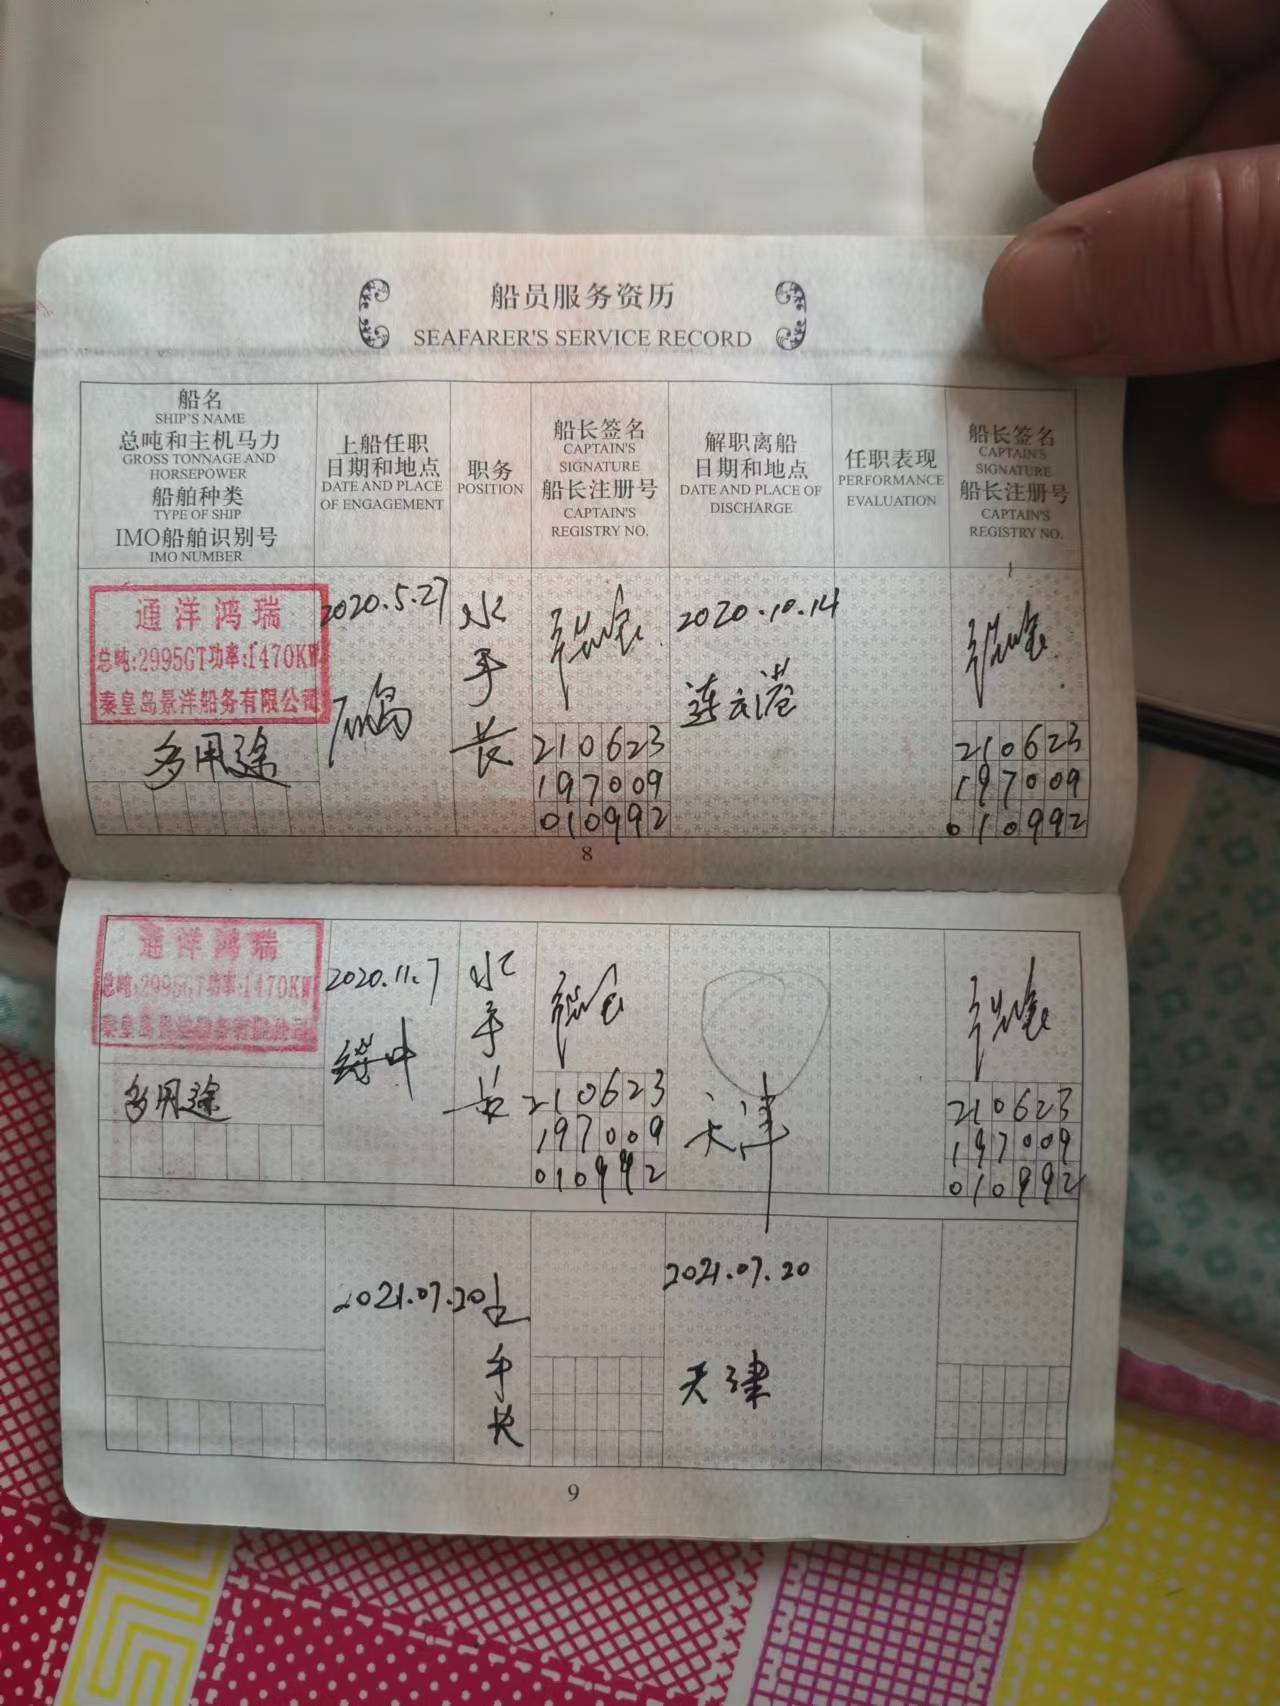 船员服务资历
SEAFARER'S SERVICE RECORD
船名
SHIP'S NAME
总吨和主机马力
GROSS TONNAGE AND
HORSEPOWER
船舶种类
TYPE OF SHIP
IMO船舶识别号
IMO NUMBER
上船任职
日期和地点
DATE AND PLACE
OF ENGAGEMENT
职务
POSITION
船长签名
CAPTAIN'S
SIGNATURE
船长注册号
CAPTAIN'S
REGISTRY NO.
解职离船
日期和地点
DATE AND PLACE OF
DISCHARGE
任职表现
PERFORMANCE
EVALUATION
船长签名
CAPTAIN'S
SIGNATURE
船长注册号
CAPTAIN'S
REGISTRY NO.
通洋鸿瑞
总吨:2995GT功率:1470KW
秦皇岛景洋船务有限公司
多用途
2020.5.27
石岛
水手长
210623
197009
010992
2020.10.14
连云港
210623
197009
010992
8
通洋鸿瑞
总吨:2995GT功率:1470KW
秦皇岛景洋船务有限公司
多用途
2020.11.7
绥中
水手长
210623
197009
010992
天津
210623
197009
010992
2021.07.20
水手长
2021.07.20
天津
9